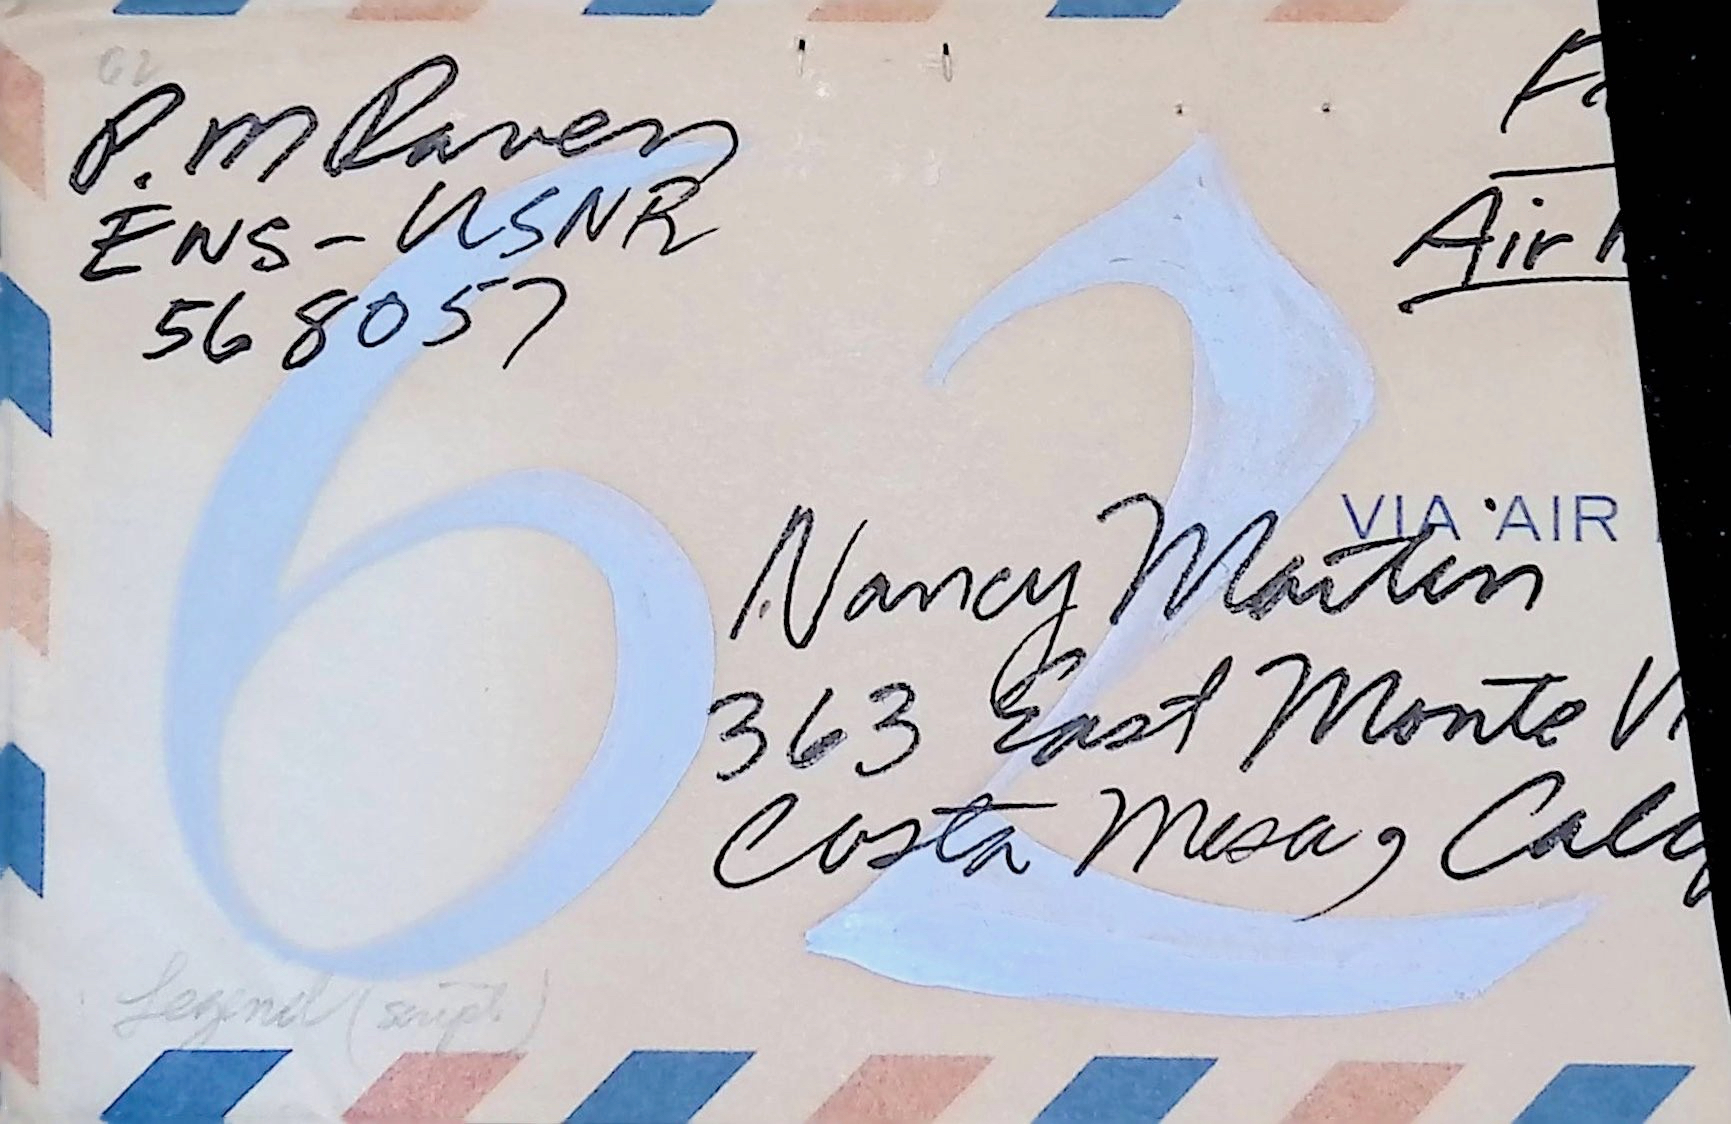 62
P. M Raven
ENS - USNR
568057
Air
62
VIA AIR
Nancy Martin
363 East Monte
Costa Mesa, Calif
Legend (script)